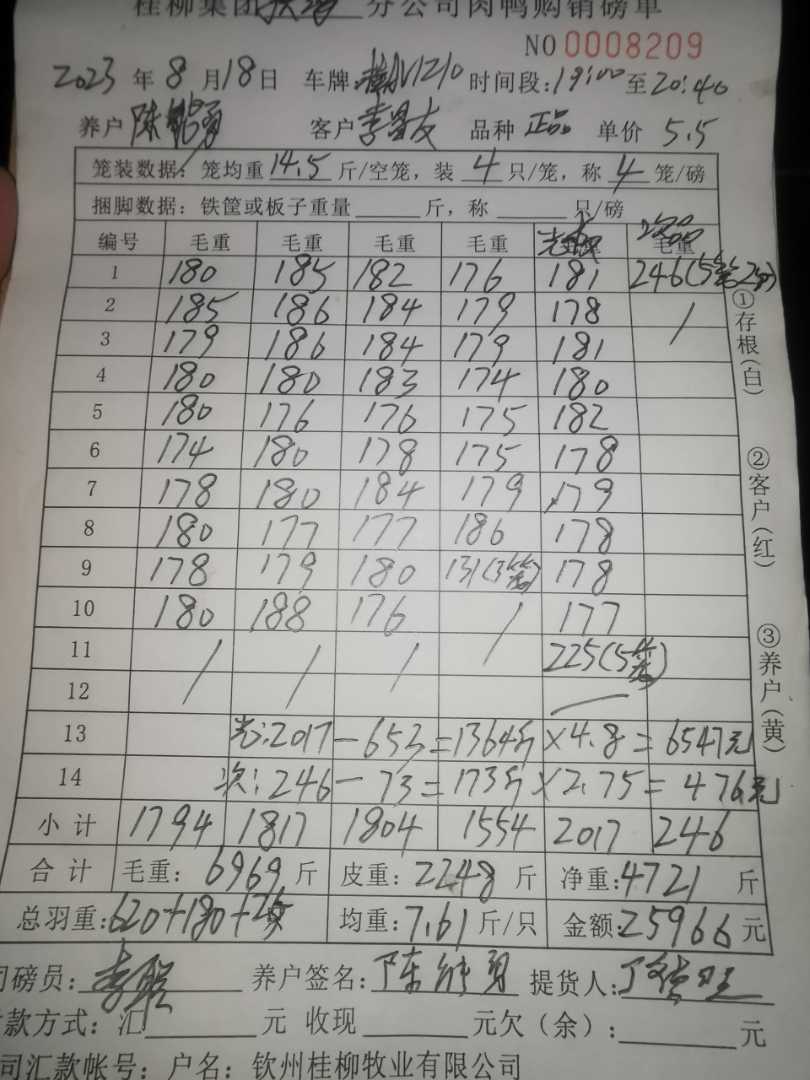 桂柳集团 分公司肉鸭购销磅单
NO 0008209
2023 年 8 月 18 日 车牌: 1210 时间段: 19:00 至 20:40
养户 陈 勇 客户 李 友 品种 正品 单价 5.5
笼装数据: 笼均重 14.5 斤/空笼, 装 4 只/笼, 称 4 笼/磅
捆脚数据: 铁筐或板子重量 斤, 称 只/磅
编号 毛重 毛重 毛重 毛重 毛重
1 180 185 182 176 181 246(5笼
2 185 186 184 179 178 /
3 179 186 184 179 181
4 180 180 183 174 180
5 180 176 176 175 182
6 174 180 178 175 178
7 178 180 184 179 179
8 180 177 177 186 178
9 178 179 180 131(3笼) 178
10 180 188 176 / 177
11 / / / 225(5笼)
12
13 光: 2017-653=1364斤×4.8=6547元
14 次: 246-73=173斤×2.75=476元
小计 1794 1817 1804 1554 2017 246
合计 毛重: 6969 斤 皮重: 2248 斤 净重: 4721 斤
总羽重: 620+180+ 均重: 7.61 斤/只 金额: 25966 元
司磅员: 李 养户签名: 陈 勇 提货人:
付款方式: 汇 元 收现 元欠(余): 元
司汇款帐号: 户名: 钦州桂柳牧业有限公司
①存根(白)
②客户(红)
③养户(黄)